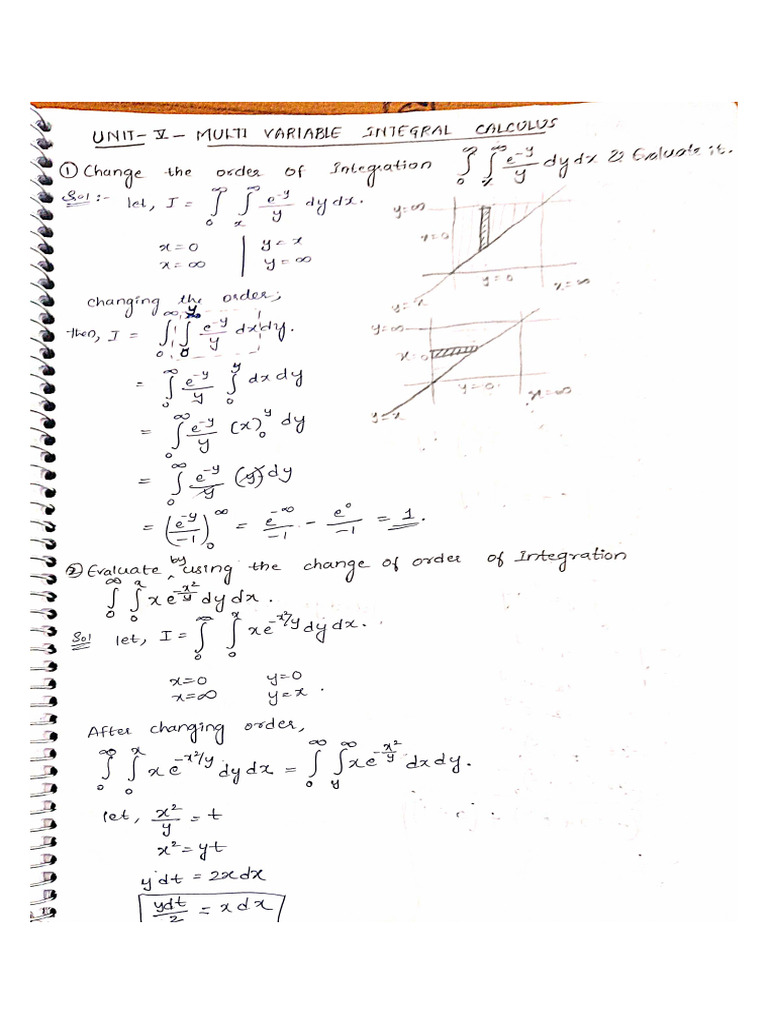 UNIT-V- MULTI VARIABLE INTEGRAL CALCULUS
① Change the order of Integration ∫₀^∞ ∫ₓ^∞ e^-y/y dy dx & Evaluate it.
Sol :- let, I = ∫₀^∞ ∫ₓ^∞ e^-y/y dy dx.
x=0 | y=x
x=∞ | y=∞
y=∞
x=0
y=0
x=∞
y=x
changing the order;
then, I = ∫₀^∞ ∫₀^y e^-y/y dx dy.
y=∞
x=0
y=0
x=∞
y=x
= ∫₀^∞ e^-y/y ∫₀^y dx dy
= ∫₀^∞ e^-y/y (x)₀^y dy
= ∫₀^∞ e^-y/y (y) dy
= (e^-y/-1)₀^∞ = e^-∞/-1 - e^0/-1 = 1.
② Evaluate by using the change of order of Integration
∫₀^∞ ∫₀^x x e^-x²/y dy dx.
Sol let, I = ∫₀^∞ ∫₀^x x e^-x²/y dy dx.
x=0 y=0
x=∞ y=x.
After changing order,
∫₀^∞ ∫₀^x x e^-x²/y dy dx = ∫₀^∞ ∫_y^∞ x e^-x²/y dx dy.
let, x²/y = t
x² = yt
y dt = 2x dx
ydt/2 = x dx